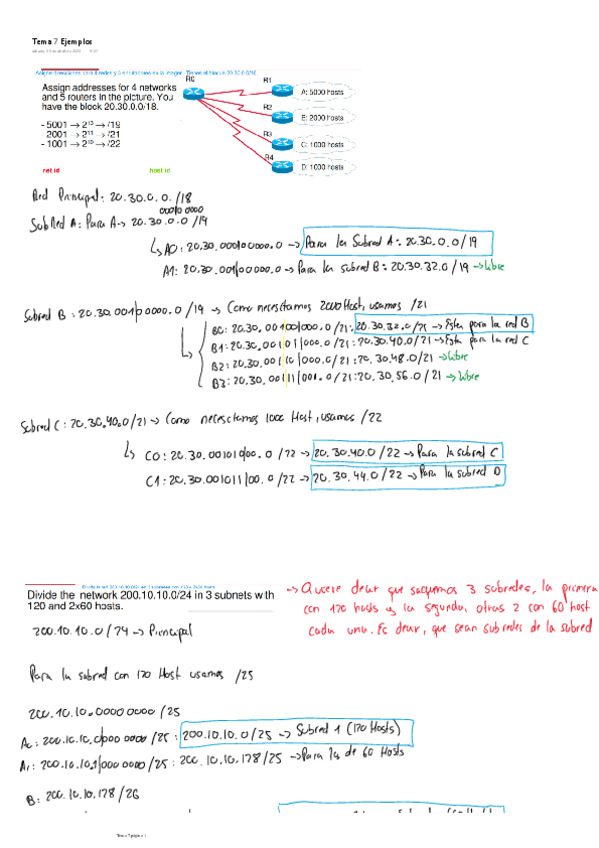 Tema 7 Ejemplos
Assign addresses for 4 networks
and 5 routers in the picture. You
have the block 20.30.0.0/18.
- 5001 → 2¹³ → /19
2001 → 2¹¹ → /21
- 1001 → 2¹⁰ → /22
net id host id
R0
R1
R2
R3
R4
A: 5000 hosts
B: 2000 hosts
C: 1000 hosts
D: 1000 hosts
Red Principal: 20.30.0.0./18
Subred A: Para A → 20.30.0.0/19
A0: 20.30.000|00000.0 → Para la Subred A: 20.30.0.0/19
A1: 20.30.001|00000.0 → Para la subred B: 20.30.32.0/19 → Libre
Subred B: 20.30.001|00000.0/19 → Como necesitamos 2000 Host, usamos /21
B0: 20.30.00100|000.0/21: 20.30.32.0/21 → Esta para la red B
B1: 20.30.00101|000.0/21: 20.30.40.0/21 → Esta para la red C
B2: 20.30.00110|000.0/21: 20.30.48.0/21 → Libre
B3: 20.30.00111|001.0/21: 20.30.56.0/21 → Libre
Subred C: 20.30.40.0/21 → Como necesitamos 1000 Host, usamos /22
C0: 20.30.001010|00.0/22 → 20.30.40.0/22 → Para la subred C
C1: 20.30.001011|00.0/22 → 20.30.44.0/22 → Para la subred D
Divide the network 200.10.10.0/24 in 3 subnets with
120 and 2x60 hosts.
→ Quiere decir que saquemos 3 subredes, la primera
con 120 hosts y la segunda, otras 2 con 60 host
cada una. Es decir, que sean subredes de la subred
200.10.10.0/24 → Principal
Para la subred con 120 Host usamos /25
200.10.10.00000000/25
A0: 200.10.10.0|0000000/25: 200.10.10.0/25 → Subred 1 (120 Hosts)
A1: 200.10.10.1|0000000/25: 200.10.10.128/25 → Para las de 60 Hosts
B: 200.10.10.128/26